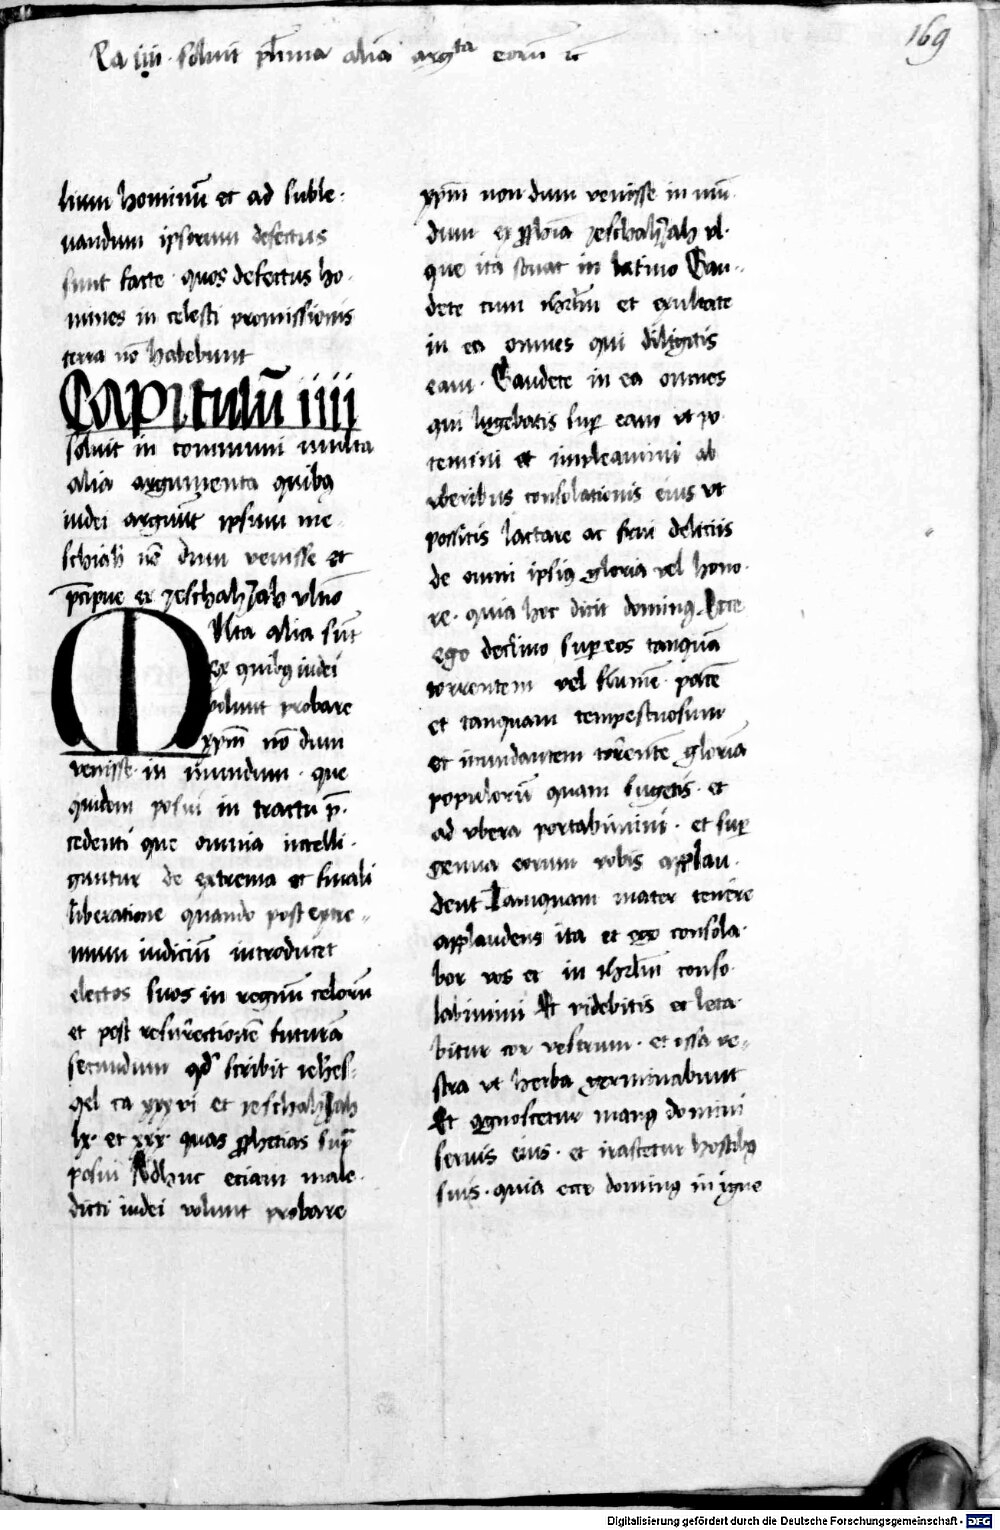 Ca iiij. soluit plima alia argta eorū etc
169
lium hominū et ad suble
uandum ipsorum defectus
sunt facte quos defectus ho
mines in celesti promissionis
terra nō habebunt
Capitulū iiij
soluit in communi multa
alia argumenta quibꝰ
iudei arguūt ipsum me
schiah nō dum venisse et
p̄cipue ex Jeschahjah vltīo
Mvlta alia sūt
ex quibꝰ iudei
volunt probare
xp̄m nō dum
venisse in mundum. que
quidem posui in tractu p̄
cedenti que omnia intelli
guntur de extrema et finali
liberatione quando post extre
mum iudiciū introducet
electos suos in regnū celorū
et post resurrectionē futurā
secundum qd̄ scribit iehes
qel ca xxxvi et ieschahjah
lx. et xxx. quas ꝓphetias supͣ
posui Adhuc etiam male
dicti iudei volunt probare
xp̄m non dum venisse in mū
dum ex ꝓphīa Jeschahjah vl.
que ita sonat in latino Gau
dete cum ihrlm̄ et exultate
in ea omnes qui diligitis
eam. Gaudete in ea omnes
qui lugebatis suꝑ eam vt po
temini et impleamini ab
vberibus consolationis eius vt
possitis lactare ac frui deliciis
de omni ipsiꝰ gloria vel hono
re. quia hec dicit dominꝰ. Ecce
ego declino suꝑ eos tanquā
torrentem vel flumē pacē
et tanquam tempestuosum
et inundantem torrentē gloriā
populorū quam sugetis. et
ad vbera portabimini. et suꝑ
genua eorum vobis applau
dent Tamquam mater tenere
applaudens ita et ego consola
bor vos et in ihrlm̄ conso
labimini Et videbitis et leta
bitur cor vestrum. et ossa ve
stra vt herba germinabunt
Et agnoscetur manꝰ domini
seruis eius. et irascetur hostibꝰ
suis. quia ecce dominꝰ in igne
Digitalisierung gefördert durch die Deutsche Forschungsgemeinschaft - DFG